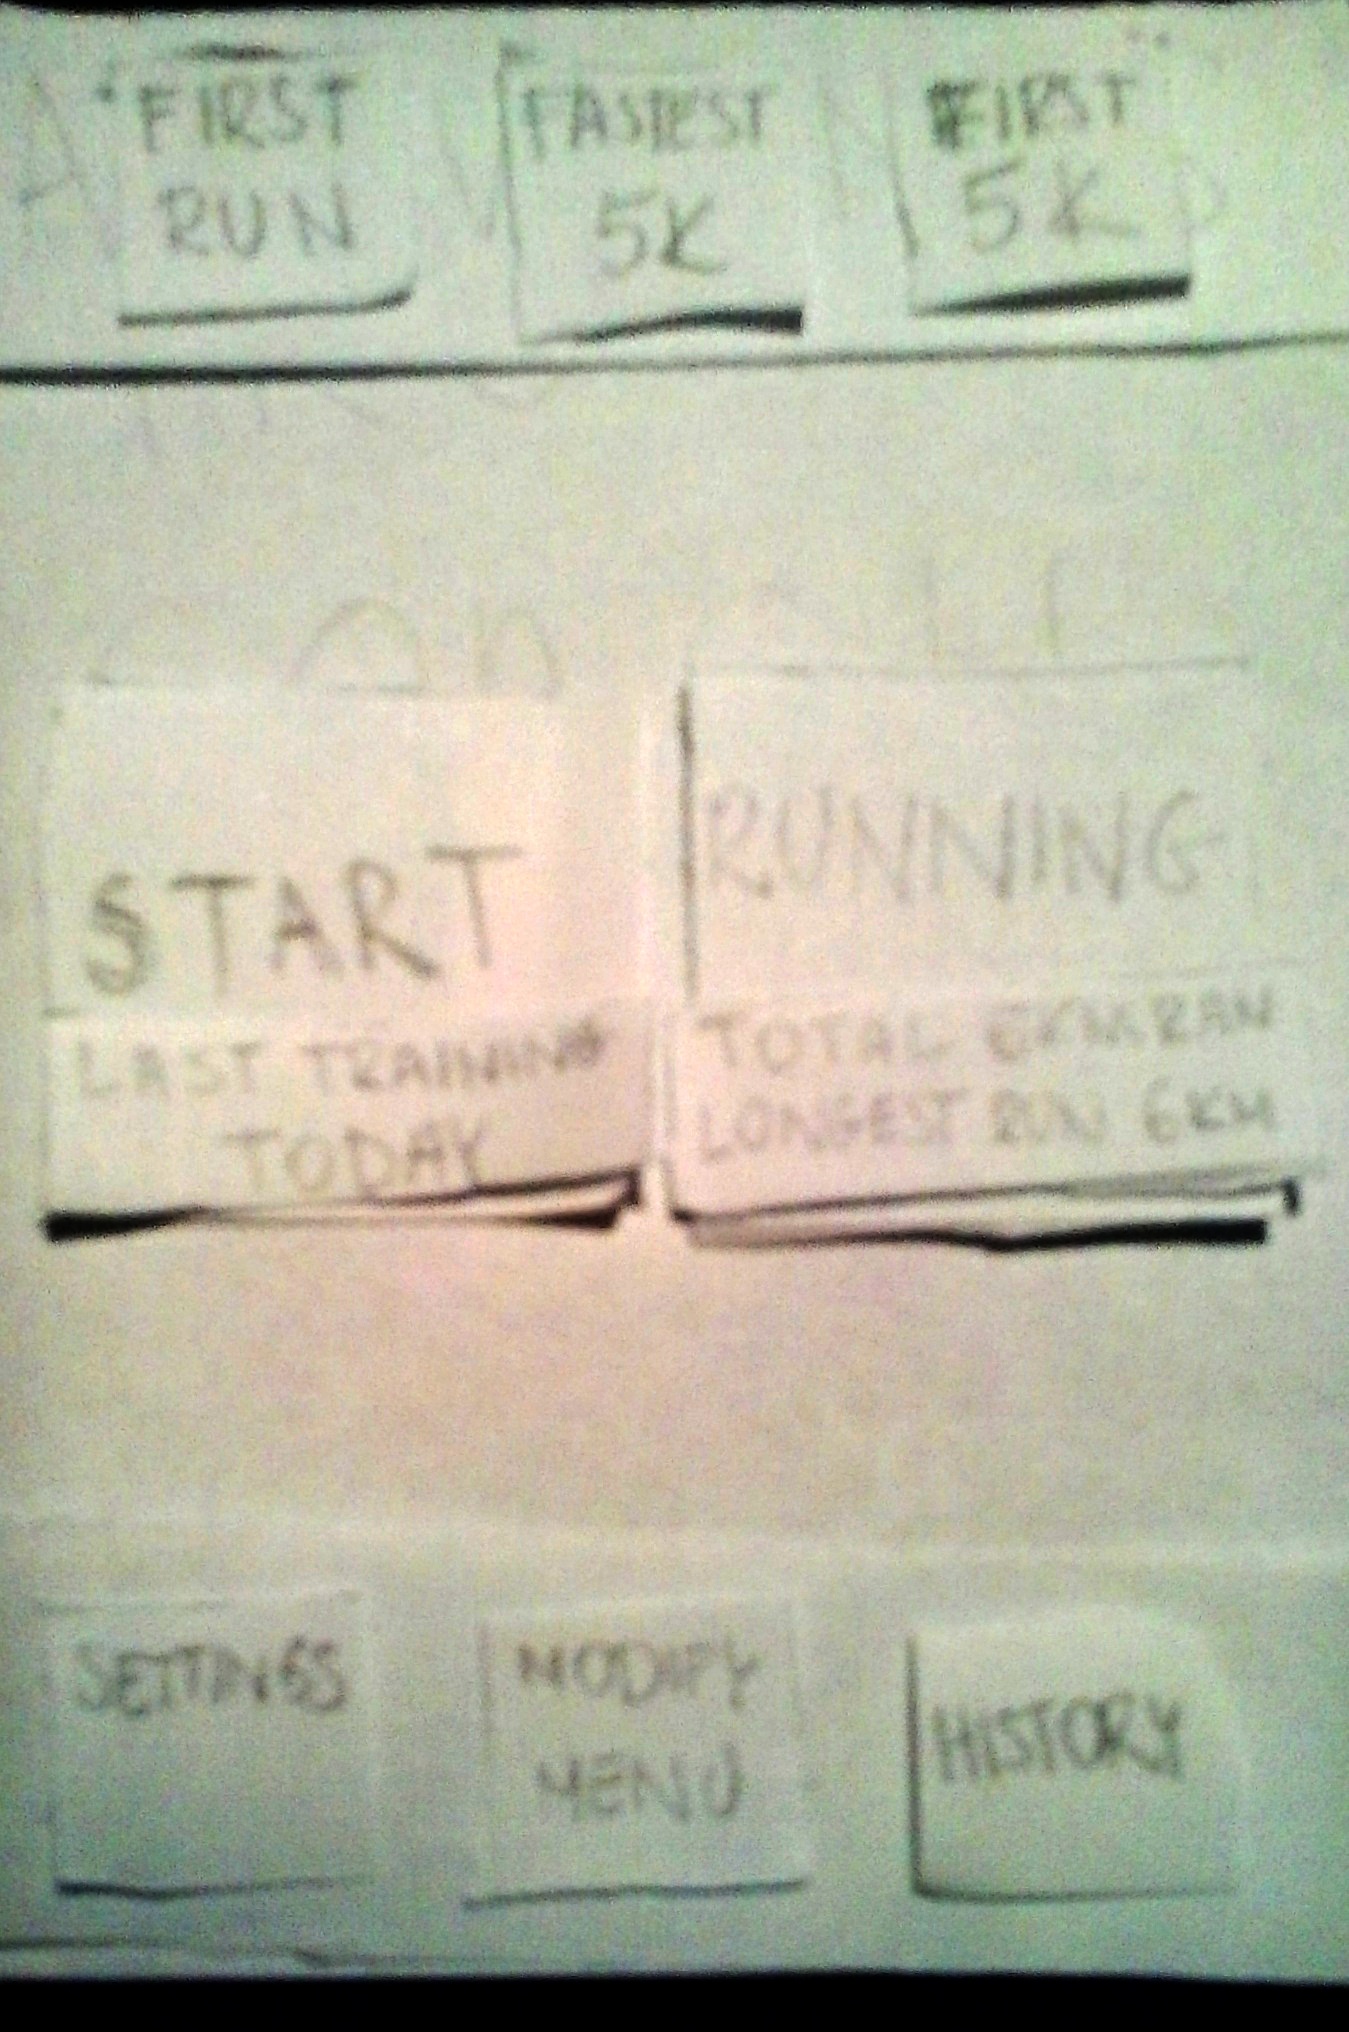 FIRST
RUN
FASTEST
5K
FIRST
5K
START
LAST TRAINING
TODAY
RUNNING
TOTAL 6KM RAN
LONGEST RUN 6KM
SETTINGS
MODIFY
MENU
HISTORY